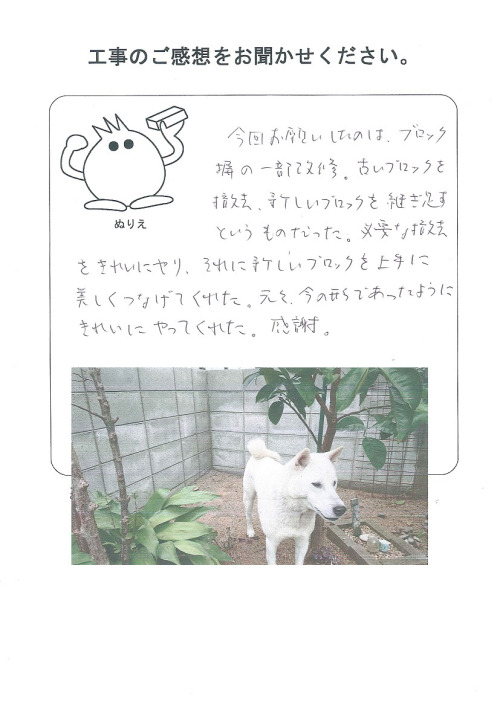 工事のご感想をお聞かせください。
ぬりえ
今回お願いしたのは、ブロック
塀の一部改修。古いブロックを
撤去、新しいブロックを継ぎ足す
というものだった。必要な撤去
をきれいにやり、それに新しいブロックを上手に
美しくつなげてくれた。元々、今の形であったように
きれいにやってくれた。感謝。